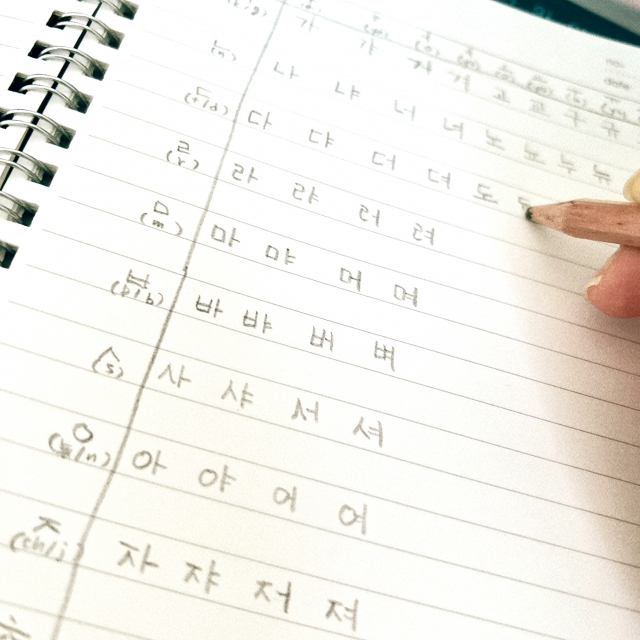 가 갸 거 겨 고 교 구 규
ㄴ 나 냐 너 녀 노 뇨 누 뉴
ㄷ 다 댜 더 뎌 도
ㄹ 라 랴 러 려
ㅁ (m) 마 먀 머 며
ㅂ 바 뱌 버 벼
ㅅ (s) 사 샤 서 셔
ㅇ 아 야 어 여
ㅈ 자 쟈 저 져